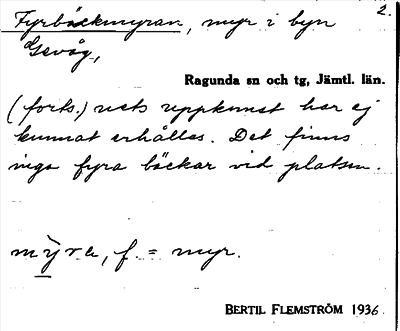 2.
Fyrbäckmyran, myr i byn
Gevåg,
Ragunda sn och tg, Jämtl. län.
(forts.) nets uppkomst har ej
kunnat erhållas. Det finns
inga fyra bäckar vid platsen.
mỳra, f. = myr.
BERTIL FLEMSTRÖM 1936